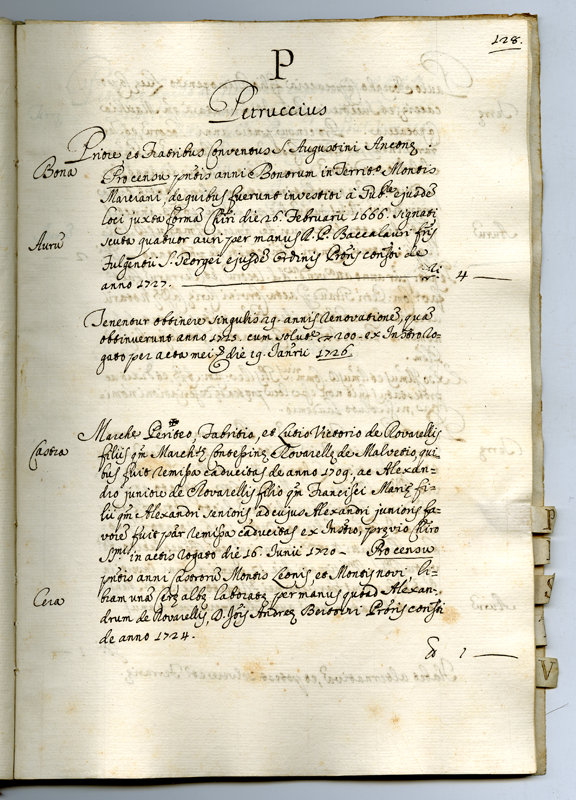 128.
P
Petruccius
Priore et Fratribus Conventus S. Augustini Anconæ
Bona
Pro censu pntis anni Bonorum in Territo Montis
Marciani, de quibus fuerunt investiti à
loci juxta formā Chiri die 26. Februarii 1666. signati
Aurū
scuta quatuor auri per manus R. P. Baccalauri fris
Fulgentii S. Georgei ejusdē ordinis Proris consti de
anno 1727.
4
Tenentur obtinere singulis 29. annis renovationē, quā
obtinuerunt anno 1725. cum solute 200. ex Instro Ro-
gato per acta mei die 19. Januarii 1726
Castra
March Periteo, Fabritio, et Lutio Victorio de Rovarellis
filiis qm Marchis Contessinæ Rovarellæ de Malvetio, qui
bus fuit remissa caducitas de anno 1709. ac Alexan-
dro juniore de Rovarellis filio qm Francisci Mariæ fi-
lii qm Alexandri senioris ad cujus Alexandri junioris fa-
vore fuit remissa caducitas ex Instro, prævio Chiro
SSmi in actis rogato die 16. Junii 1720 - Pro censu
pntis anni Castrorū Montis Leonis, et Montis novi, li-
Cera
bram unā Ceræ albæ laboratæ per manus Alexan-
drum de Rovarellis D. Jois Andreæ Bertoni Proris consti
de anno 1724.
1
P
I
S
V